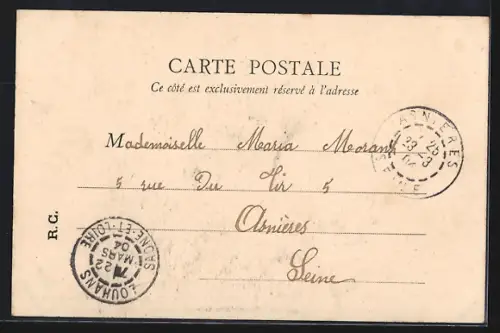 CARTE POSTALE
Ce côté est exclusivement réservé à l'adresse
Mademoiselle Maria Morant
5 rue Du Tir 5
Asnières
Seine
R. C.
ASNIÈRES
SEINE
LOUHANS
SAONE-ET-LOIRE
22
MARS
04